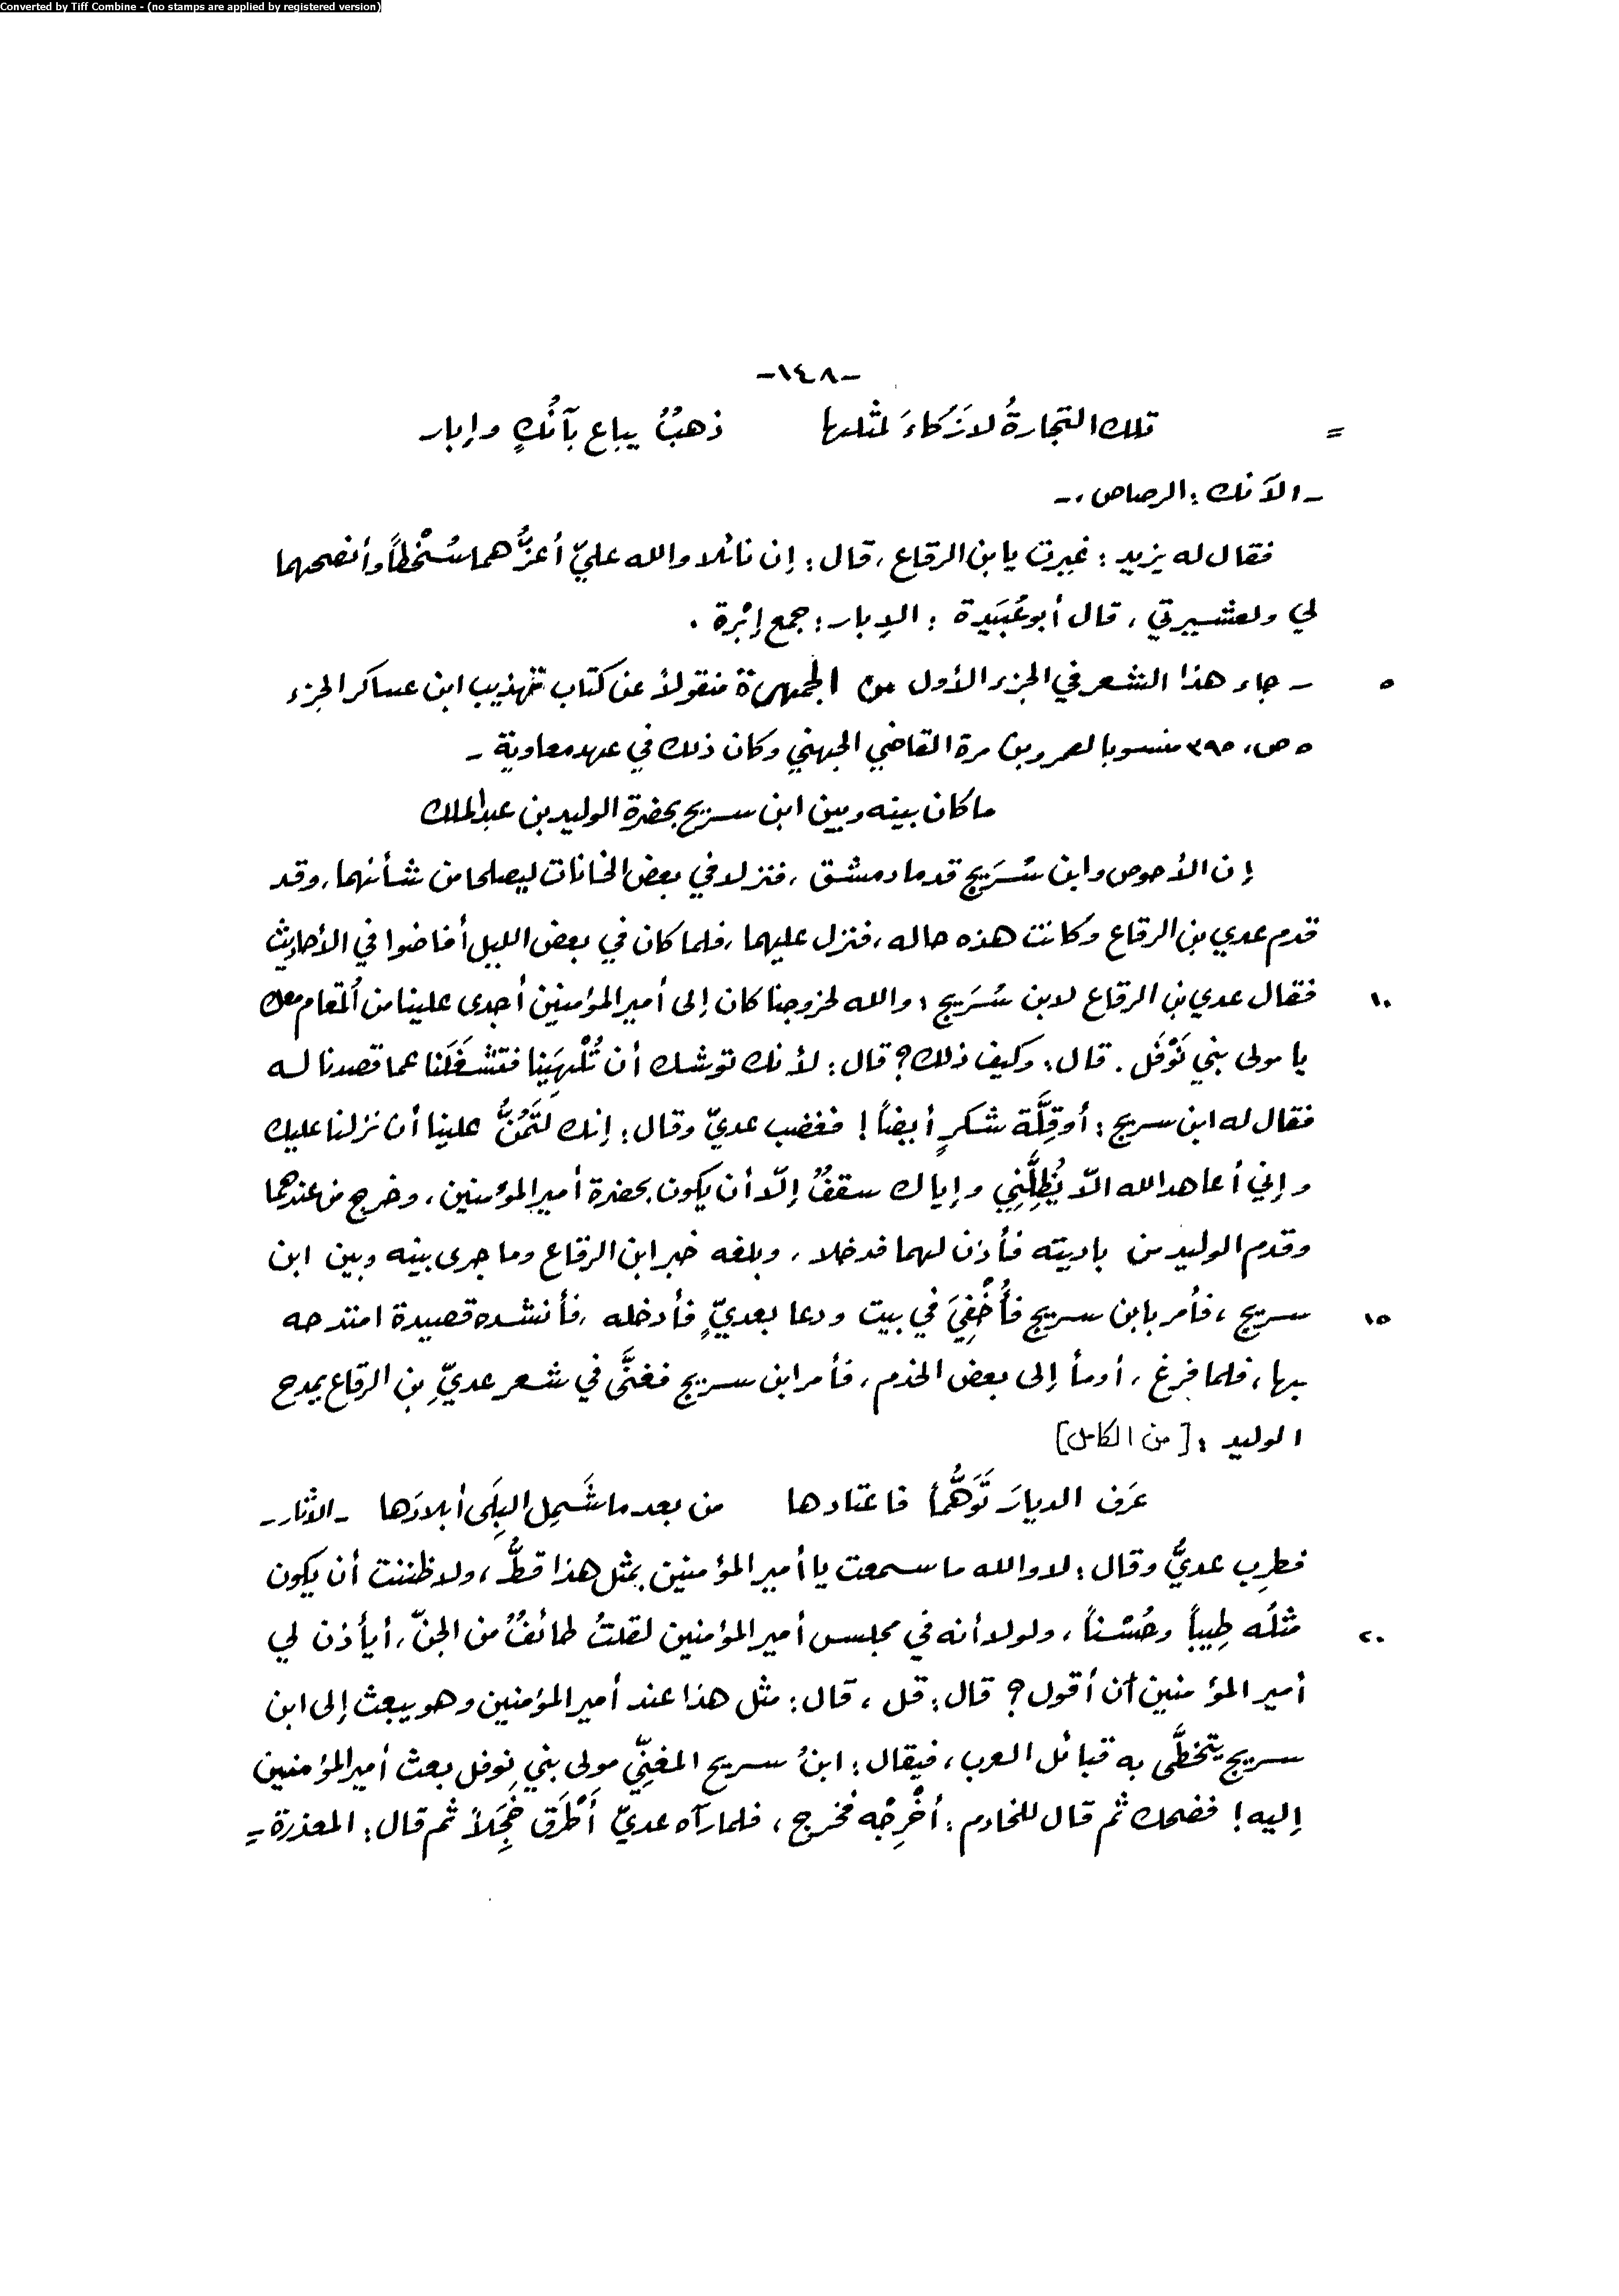 Converted by Tiff Combine - (no stamps are applied by registered version)
-١٤٨-
= تلك التجارةُ لا زَكاءَ لمثلها ذهبٌ يباع بآنُكٍ وإبار
- الآنك : الرصاص .-
فقال له يزيد : غيرت يا بن الرقاع ، قال : إن نائلا والله عليّ أعزُّهما سُخْطاً وأنصحهما
لي ولعشيرتي ، قال أبو عُبَيدة : الإبار : جمع إبْرة .
٥ - جاء هذا الشعر في الجزء الأول من الجمهرة منقولاً عن كتاب تهذيب ابن عساكر الجزء
٥ ص، ٣٩٥ منسوبا لعمرو بن مرة القاضي الجهني وكان ذلك في عهد معاوية -
ما كان بينه وبين ابن سريج بحضرة الوليد بن عبد الملك
إن الأحوص وابن سُرَيج قدما دمشق ، فنزلا في بعض الخانات ليصلحا من شأنهما ، وقد
قدم عدي بن الرقاع وكانت هذه حاله ، فنزل عليهما ، فلما كان في بعض الليل أفاضوا في الأحاديث
١٠ فقال عدي بن الرقاع لابن سُرَيج : والله لخروجنا كان إلى أمير المؤمنين أجدى علينا من المقام معك
يا مولى بني نَوْفَل . قال : وكيف ذلك ؟ قال : لأنك توشك أن تُلْهِيَنا فتشغَلَنا عما قصدنا له
فقال له ابن سريج : أوقِلَّة شكرٍ أيضاً ! فغضب عديّ وقال : إنك لتَمُنُّ علينا أن نزلنا عليك
وإني أعاهد الله الّا يُظِلَّنِي وإياك سقفٌ إلّا أن يكون بحضرة أمير المؤمنين ، وخرج من عندهما
وقدم الوليد من باديته فأذن لهما فدخلا ، وبلغه خبر ابن الرقاع وما جرى بينه وبين ابن
١٥ سريج ، فأمر بابن سريج فأُخْفِيَ في بيت ودعا بعديٍّ فأدخله ، فأنشده قصيدة امتدحه
بها ، فلما فرغ ، أومأ إلى بعض الخدم ، فأمر ابن سريج فغنَّى في شعر عديِّ بن الرقاع يمدح
الوليد : [من الكامل]
عَرَف الديارَ تَوَهُّماً فاعتادها من بعد ما شَمِل البِلَى أبلادَها - الآثار -
فطرِب عديٌّ وقال : لا والله ما سمعت يا أمير المؤمنين بمثل هذا قطُّ ، ولا ظننت أن يكون
٢٠ مثلُه طِيباً وحُسْناً ، ولولا أنه في مجلس أمير المؤمنين لقلتُ طائفٌ من الجنّ ، أيأذن لي
أمير المؤمنين أن أقول ؟ قال : قل ، قال : مثل هذا عند أمير المؤمنين وهو يبعث إلى ابن
سريج يتخطَّى به قبائل العرب ، فيقال : ابنُ سريج المغنِّي مولى بني نوفل بعث أمير المؤمنين
إليه ! فضحك ثم قال للخادم : أخْرِجْه فخرج ، فلما رآه عديّ أَطْرَق خَجَلاً ثم قال : المعذرة =